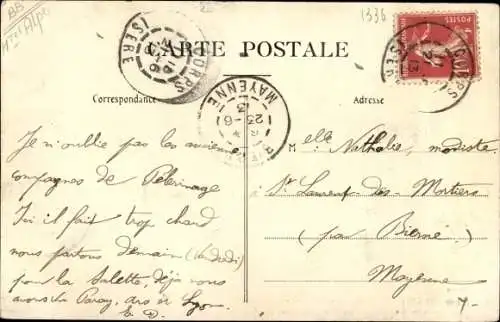 BB
Htes Alpes
1336
CORPS
ISERE
CARTE POSTALE
CORPS
ISERE
MAYENNE
13
23-6
Correspondance
Adresse
Je n'oublie pas les anciennes
compagnes de Pélerinage
Ici il fait trop chaud
nous partons demain (lundi)
pour la Salette, déjà nous
avons vu Paray, Ars et Lyon.
E. D.
Melle Nathalie, modiste
à St Laurent-des-Mortiers
(par Bierné)
Mayenne